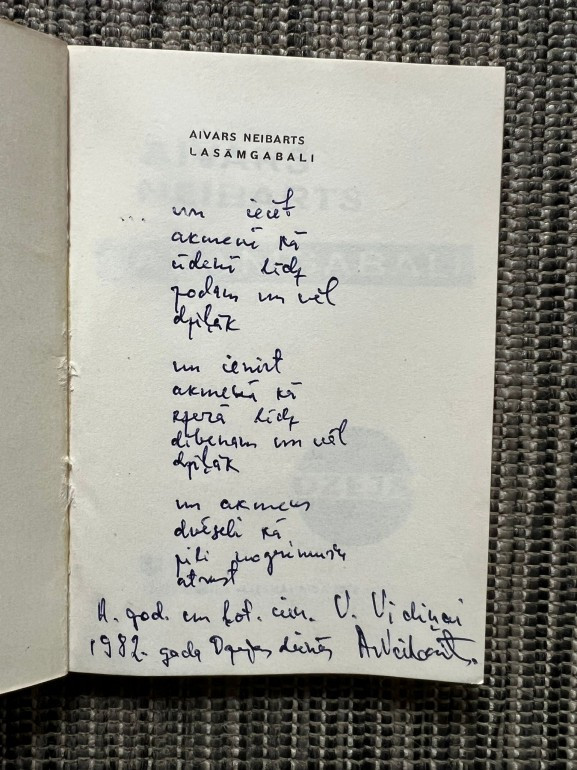 AIVARS NEIBARTS
LASĀMGABALI
... un ieiet
akmenī kā
ūdenī līdz
podam un vēl
dziļāk
un ienirt
akmenī kā
ezerā līdz
dibenam un vēl
dziļāk
un akmens
dvēseli kā
pili nogrimušu
atrast
A. god. un V.
1982. gada Dzejas dienās ANeibarts.